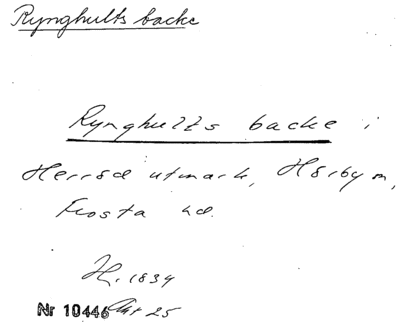 Rynghults backe
Rynghults backe i
Herrsd utmark, Hörby m,
Frosta hd.
H. 1834
Nr 10446 Akt 25